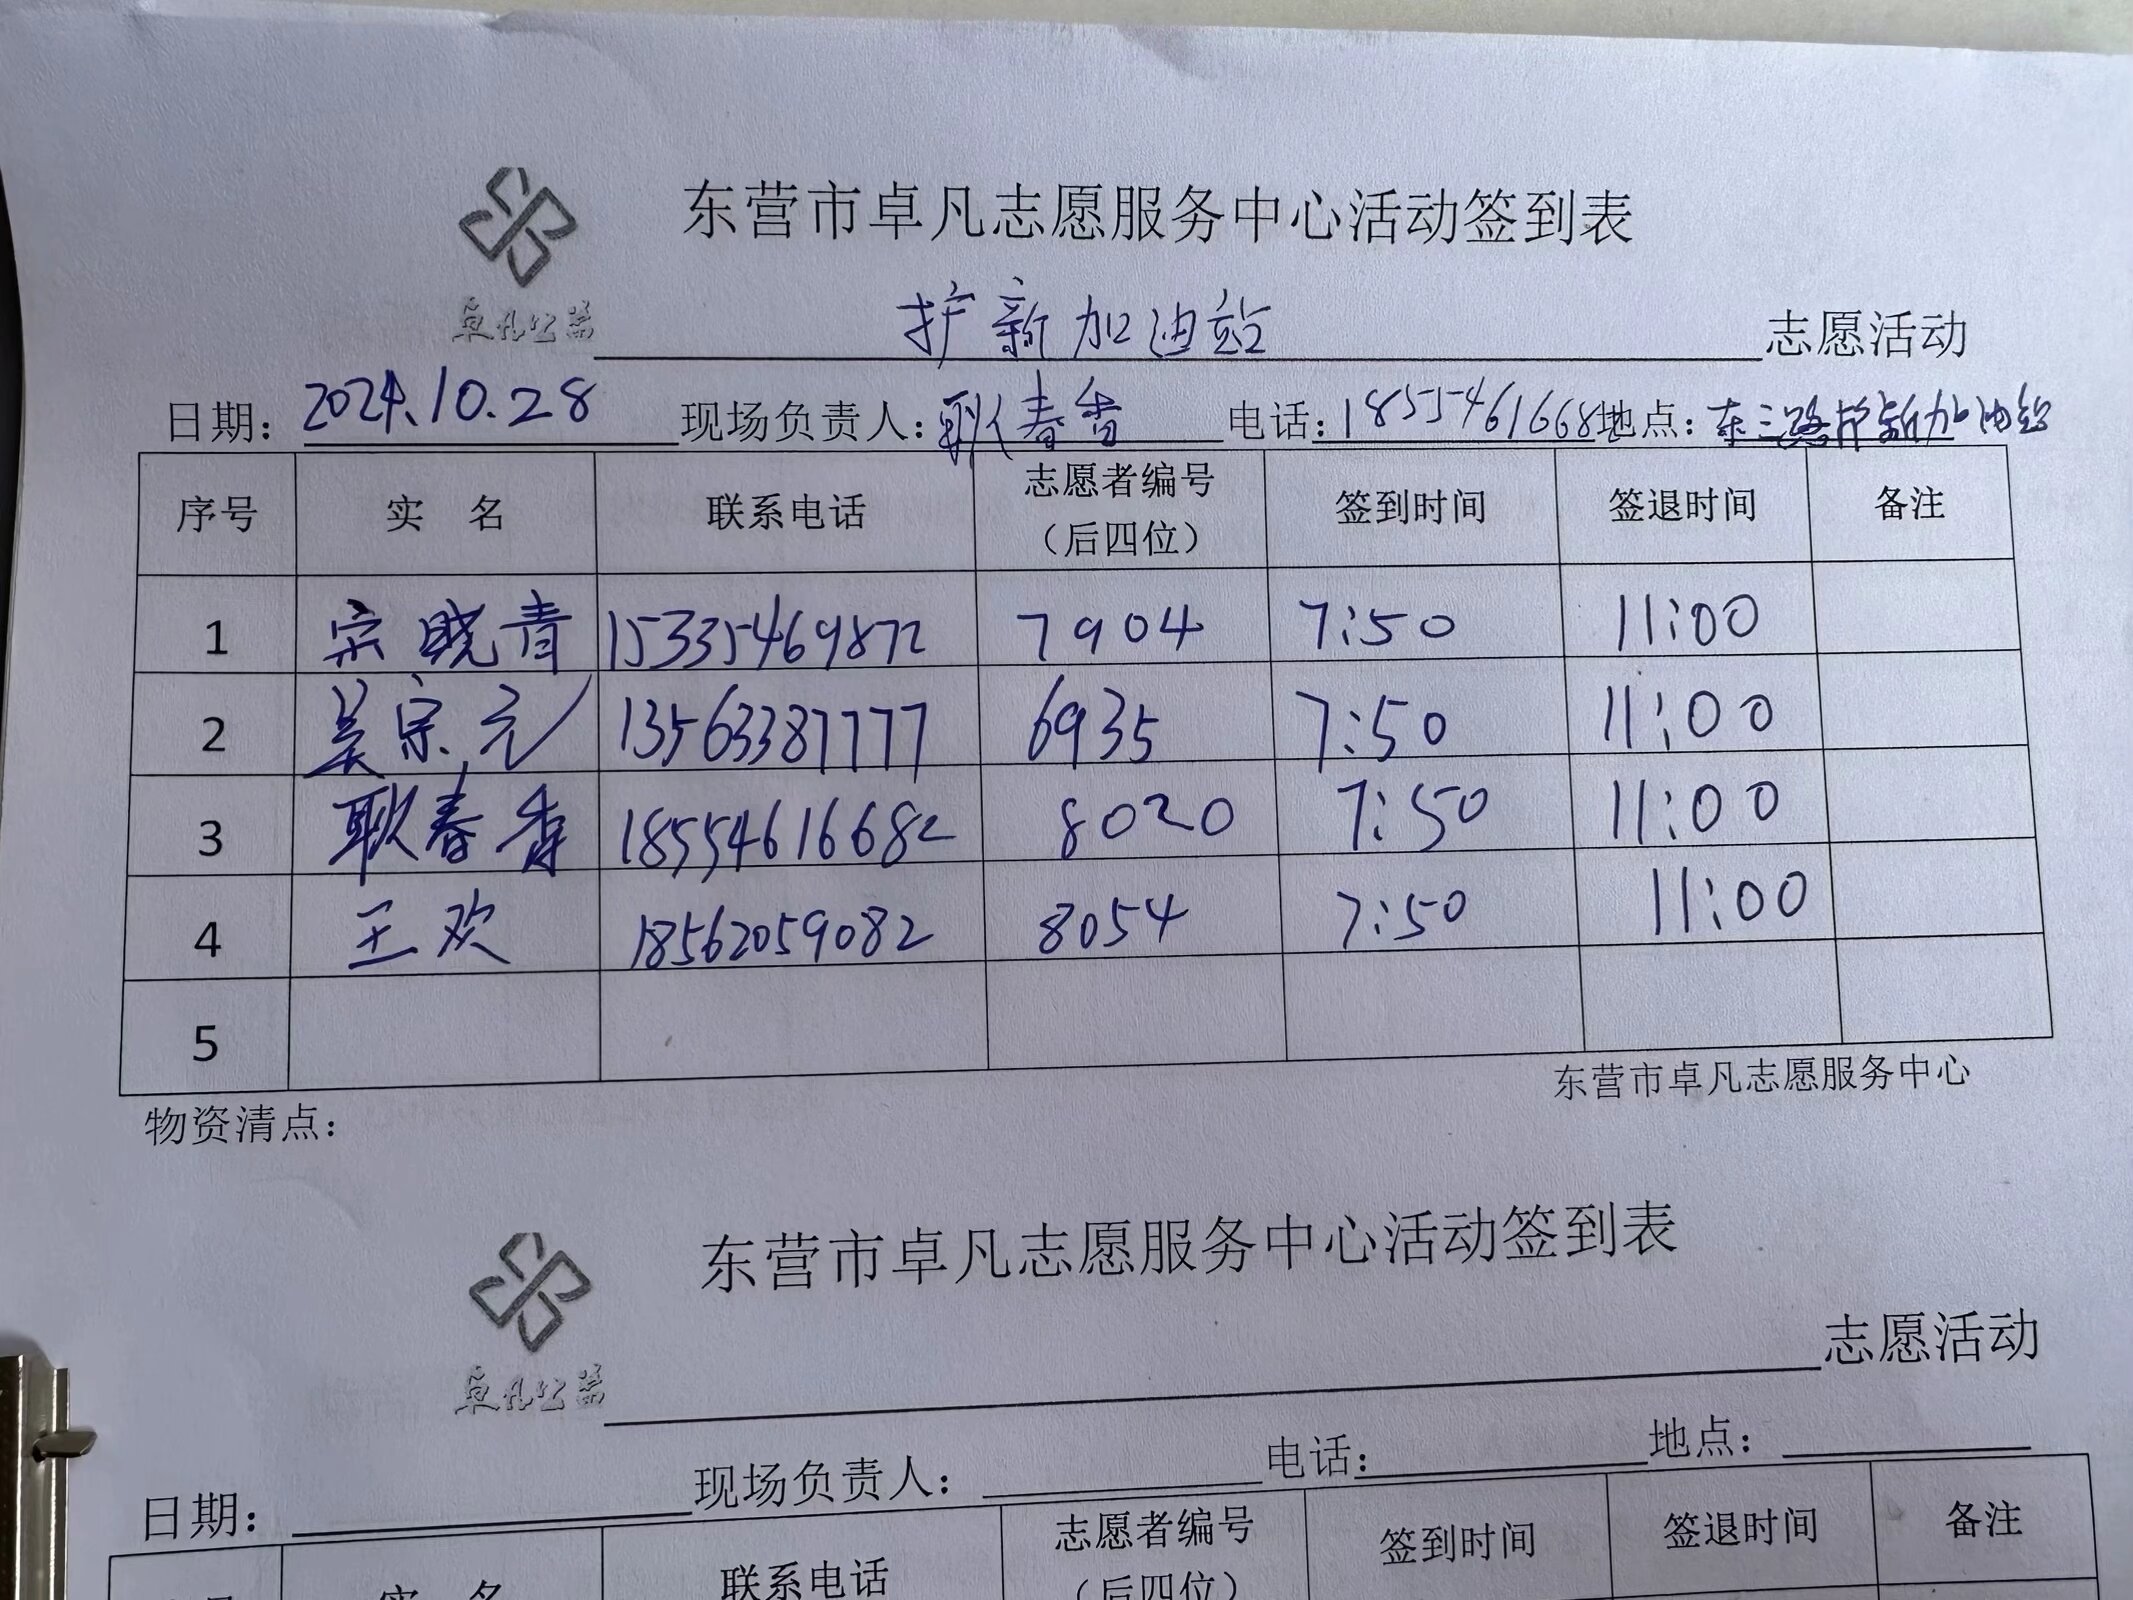 东营市卓凡志愿服务中心活动签到表
卓凡公益
护新加油站 志愿活动
日期：2024.10.28 现场负责人：耿春香 电话：18554616682 地点：东三路护新加油站
序号 实 名 联系电话 志愿者编号（后四位） 签到时间 签退时间 备注
1 宗晓青 15335469872 7904 7:50 11:00
2 吴宗元 13563387777 6935 7:50 11:00
3 耿春香 18554616682 8020 7:50 11:00
4 王欢 18562059082 8054 7:50 11:00
5
东营市卓凡志愿服务中心
物资清点：
东营市卓凡志愿服务中心活动签到表
卓凡公益
志愿活动
日期： 现场负责人： 电话： 地点：
实 名 联系电话 志愿者编号（后四位） 签到时间 签退时间 备注